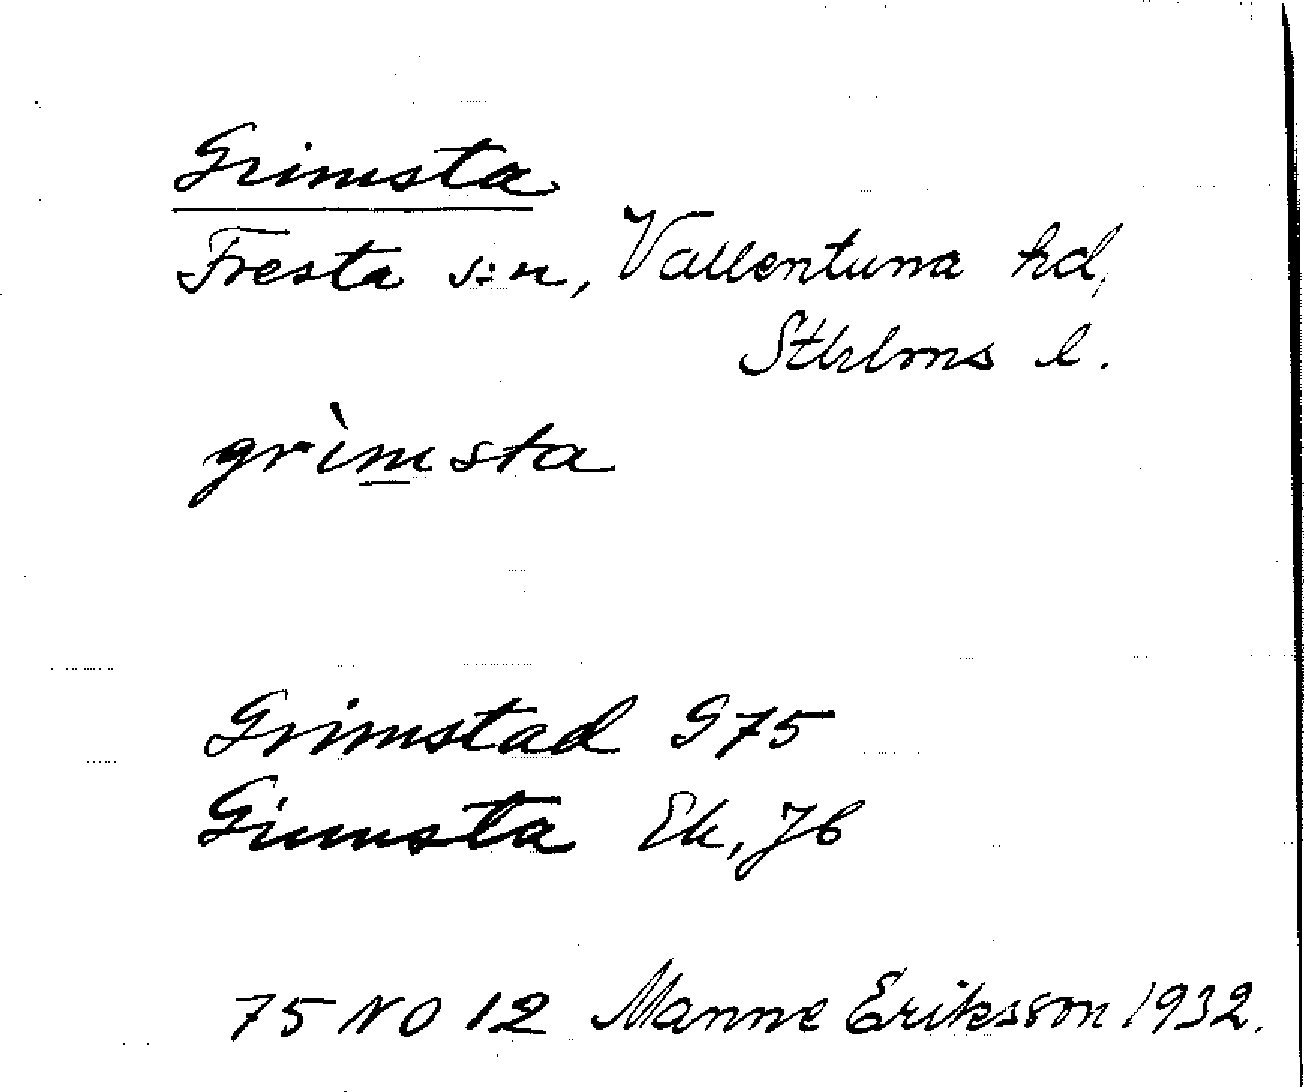 Grimsta
Fresta s:n, Vallentuna hd,
Sthlms l.
grìm̲sta
Grimstad G75
Grimsta Ek, Jb
75 NO 12 Manne Eriksson 1932.